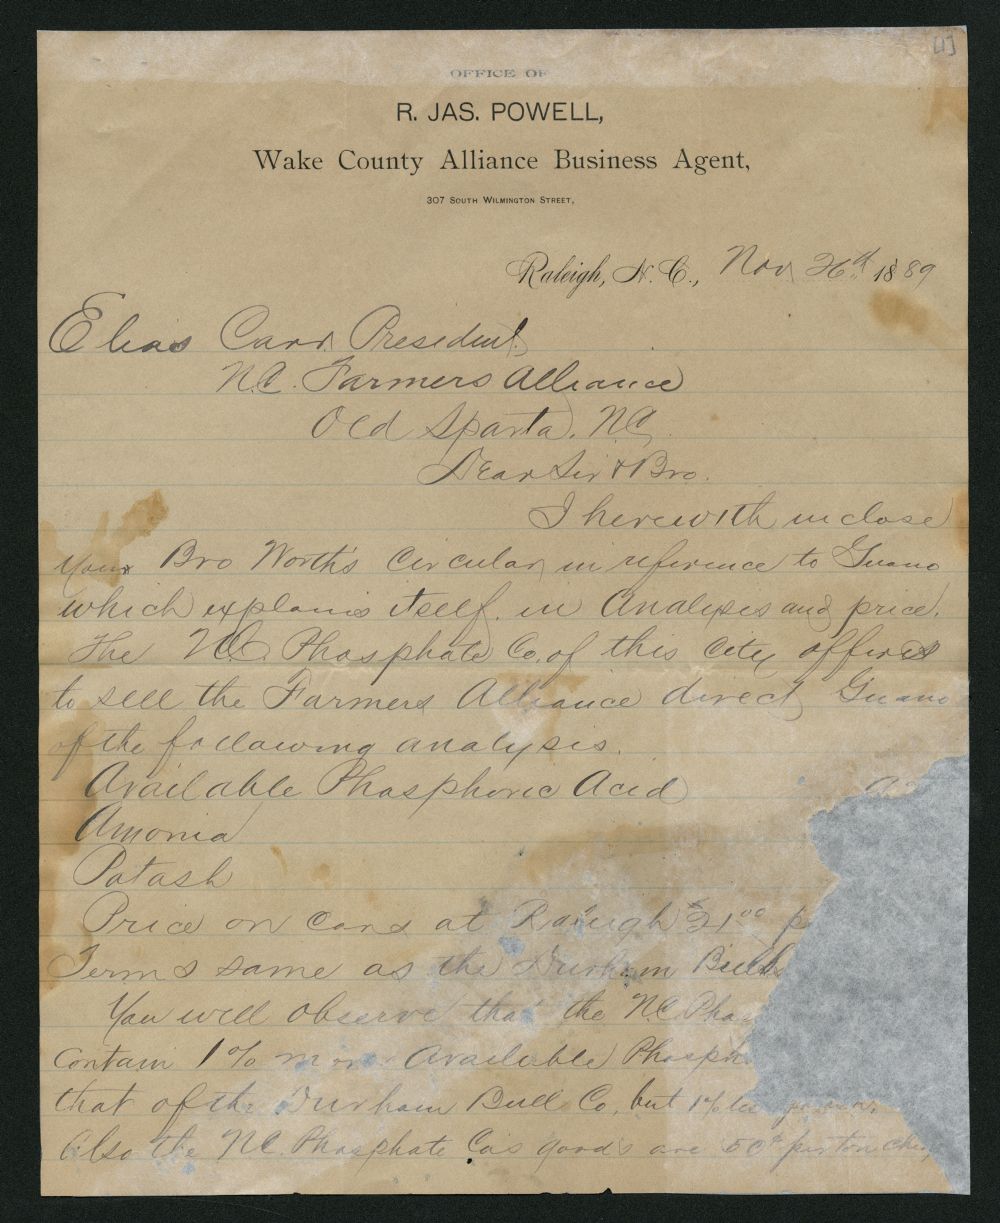 [1]
OFFICE OF
R. JAS. POWELL,
Wake County Alliance Business Agent,
307 South Wilmington Street,
Raleigh, N. C., Nov 26th 1889
Elias Carr President
N.C. Farmers Alliance
Old Sparta, NC
Dear Sir & Bro.
I herewith inclose
your Bro Worth's Circular in reference to Guano
which explains itself in Analysis and price.
The N.C. Phosphate Co. of this City offires
to sell the Farmers Alliance direct Guano
of the following analysis.
Available Phosphoric Acid
Amonia
Potash
Price on cars at Raleigh $21 00 p
Terms same as the Durham Bull
You will observe that the N.C. Phos
contain 1% more available Phosph
that of the Durham Bull Co, but 1%
Also the N.C. Phosphate Cos goods are 50c per ton